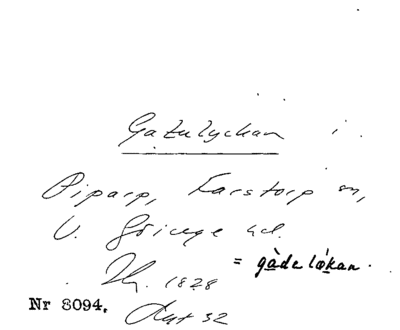 Gatulyckan i
Piparp, Farstorp sn,
V. Göinge hd.
= gàdelǽkan.
1828
Nr 8094. Akt 32